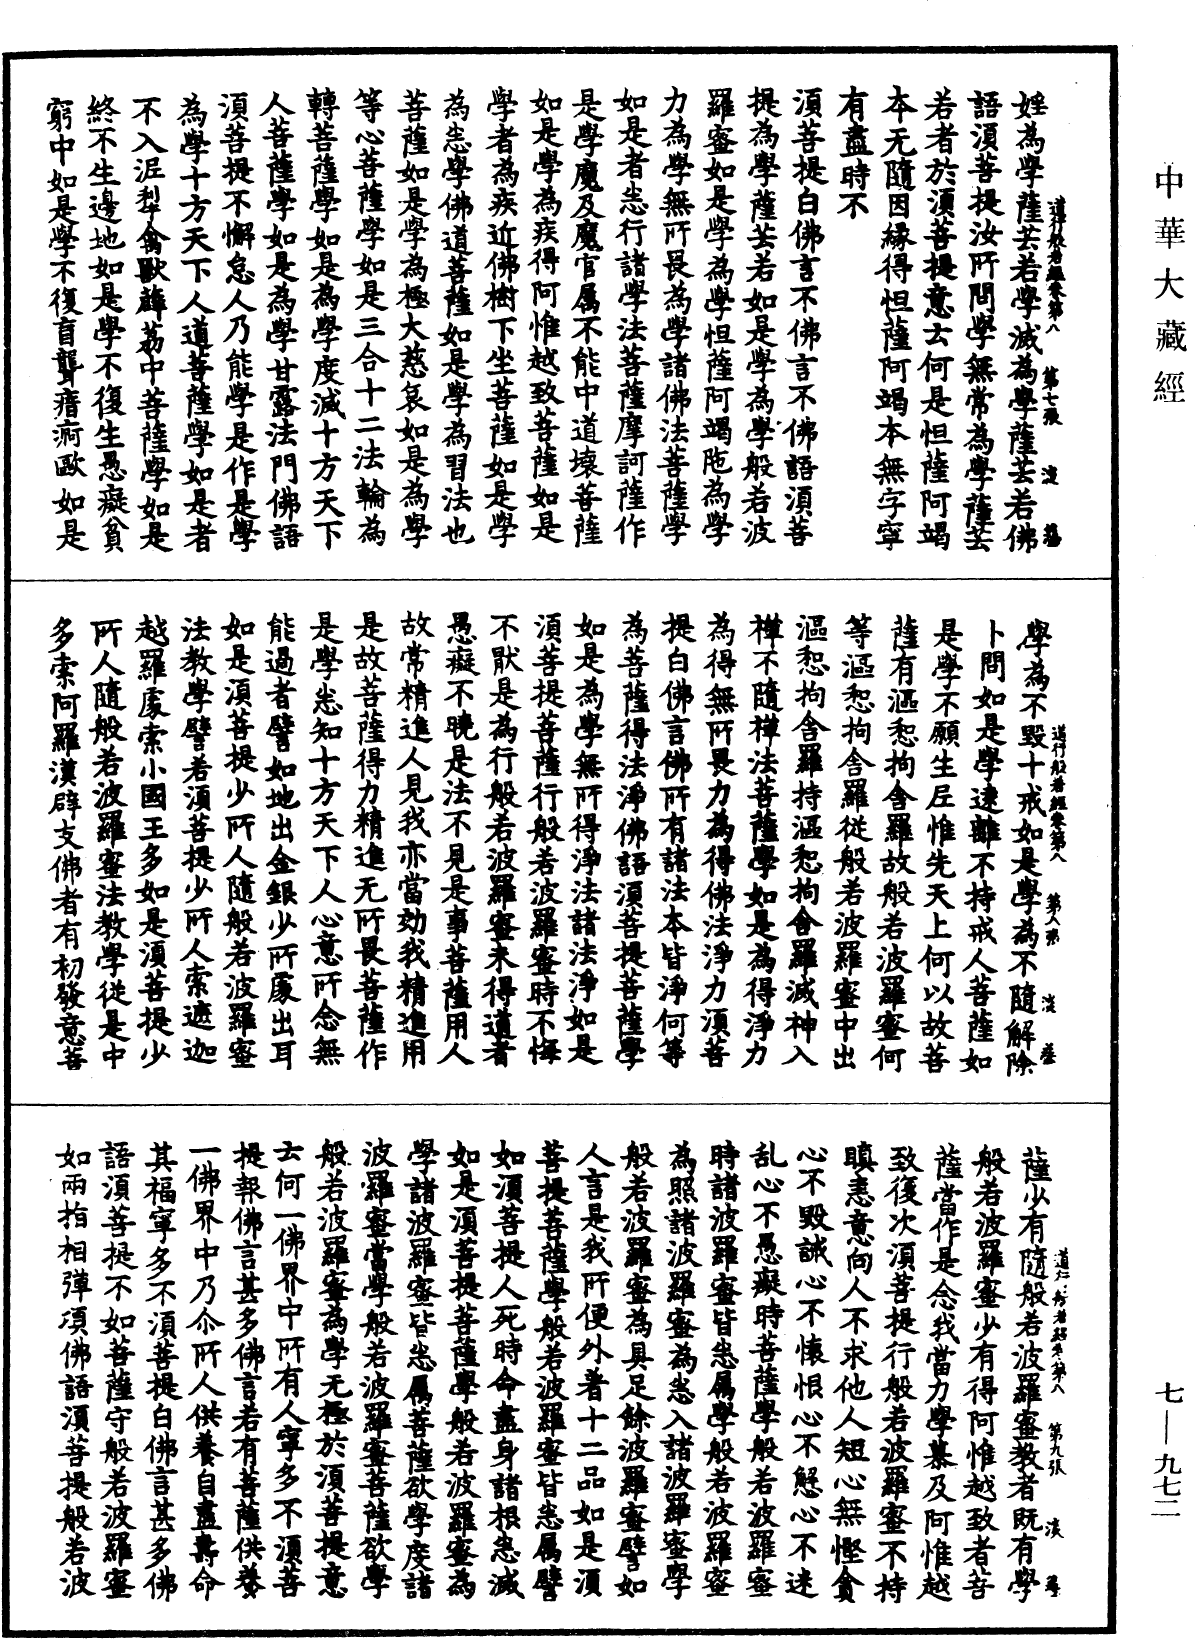 中華大藏經
道行般若經卷第八 第七張 淡
婬為學薩芸若學滅為學薩芸若佛
語須菩提汝所問學無常為學薩芸
若者於須菩提意云何是怛薩阿竭
本无隨因緣得怛薩阿竭本無字寧
有盡時不
須菩提白佛言不佛言不佛語須菩
提為學薩芸若如是學為學般若波
羅蜜如是學為學怛薩阿竭地為學
力為學無所畏為學諸佛法菩薩學
如是者悉行諸學法菩薩摩訶薩作
是學魔及魔官属不能中道壞菩薩
如是學為疾得阿惟越致菩薩如是
學者為疾近佛樹下坐菩薩如是學
為悉學佛道菩薩如是學為習法也
菩薩如是學為極大慈哀如是為學
等心菩薩學如是三合十二法輪為
轉菩薩學如是為學度滅十方天下
人菩薩學如是為學甘露法門佛語
須菩提不懈怠人乃能學是作是學
為學十方天下人道菩薩學如是者
不入泥犁禽獸薜荔中菩薩學如是
終不生邊地如是學不復生愚癡貧
窮中如是學不復盲聾瘖瘂歐如是
道行般若經卷第八 第八張 淡
學為不毀十戒如是學為不隨解除
卜問如是學遠離不持戒人菩薩如
是學不願生尼惟先天上何以故菩
薩有漚惒拘舍羅故般若波羅蜜何
等漚惒拘舍羅從般若波羅蜜中出
漚惒拘舍羅持漚惒拘舍羅滅神入
禪不隨禪法菩薩學如是為得淨力
為得無所畏力為得佛法淨力須菩
提白佛言佛所有諸法本皆淨何等
為菩薩得法淨佛語須菩提菩薩學
如是為學無所得淨法諸法淨如是
須菩提菩薩行般若波羅蜜時不悔
不猒是為行般若波羅蜜未得道者
愚癡不曉是法不見是事菩薩用人
故常精進人見我亦當効我精進用
是故菩薩得力精進无所畏菩薩作
是學悉知十方天下人心意所念無
能過者譬如地出金銀少所處出耳
如是須菩提少所人隨般若波羅蜜
法教學譬若須菩提少所人索遮迦
越羅處索小國王多如是須菩提少
所人隨般若波羅蜜法教學從是中
多索阿羅漢辟支佛者有初發意菩
道行般若經卷第八 第九張 淡
薩少有隨般若波羅蜜教者既有學
般若波羅蜜少有得阿惟越致者菩
薩當作是念我當力學慕及阿惟越
致復次須菩提行般若波羅蜜不持
瞋恚意向人不求他人短心無慳貪
心不毀誡心不懷恨心不懈心不迷
乱心不愚癡時菩薩學般若波羅蜜
時諸波羅蜜皆悉属學般若波羅蜜
為照諸波羅蜜為悉入諸波羅蜜學
般若波羅蜜為具足餘波羅蜜譬如
人言是我所便外著十二品如是須
菩提菩薩學般若波羅蜜皆悉属譬
如須菩提人死時命盡身諸根悉滅
如是須菩提菩薩學般若波羅蜜為
學諸波羅蜜皆悉属菩薩欲學度諸
波羅蜜當學般若波羅蜜菩薩欲學
般若波羅蜜為學无極於須菩提意
云何一佛界中所有人寧多不須菩
提報佛言甚多佛言若有菩薩供養
一佛界中乃尒所人供養自盡壽命
其福寧多不須菩提白佛言甚多佛
語須菩提不如菩薩守般若波羅蜜
如兩指相彈頃佛語須菩提般若波
七—九七二